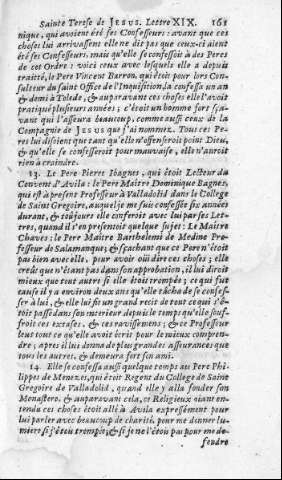 Sainte Terese de JESUS. Lettre XIX. 161
nique, qui avoient été ses Confesseurs: avant que ces
choses lui arrivassent elle ne dit pas que ceux-ci aient
été ses Confesseurs, mais qu'elle se confessoit à des Peres
de cet Ordre: voici ceux avec lesquels elle a depuis
traitté, le Pere Vincent Barron, qui étoit pour lors Con-
sulteur du saint Office de l'Inquisition, la confessa un an
& demi à Tolede, & auparavant ces choses elle l'avoit
pratiqué plusieurs années; c'étoit un homme fort sça-
vant qui l'asseura beaucoup, comme aussi ceux de la
Compagnie de JESUS que j'ai nommez. Tous ces Pe-
res lui disoient que tant qu'elle n'offenseroit point Dieu,
& qu'elle se confesseroit pour mauvaise, elle n'auroit
rien à craindre.
13. Le Pere Pierre Ibagnes, qui étoit Lecteur du
Convent d'Avila: le Pere Maître Dominique Bagnes,
qui est à present Professeur à Valladolid dans le College
de Saint Gregoire, auquel je me suis confessée six années
durant, & toûjours elle conferoit avec lui par ses Let-
tres, quand il s'en presentoit quelque sujet: Le Maître
Chaves: le Pere Maître Barthelemi de Medine Pro-
fesseur de Salamanque; & sçachant que ce Pere n'étoit
pas bien avec elle, pour avoir oüi dire ces choses; elle
creût que n'étant pas dans son approbation, il lui diroit
mieux que tout autre si elle étoit trompée; ce qui fut
cause il y a environ deux ans qu'elle tâcha de se confes-
ser à lui, & elle lui fit un grand recit de tout ce qui s'é-
toit passé dans son interieur depuis le temps qu'elle souf-
froit ces extases, & ces ravissemens; & ce Professeur
leut tout ce qu'elle avoit écrit pour le mieux compren-
dre; apres il lui donna de plus grandes asseurances que
tous les autres, & demeura fort son ami.
14. Elle se confessa aussi quelque temps au Pere Phi-
lippes de Menezes, qui étoit Regent du College de Saint
Gregoire de Valladolid, quand elle y alla fonder son
Monastere, & auparavant cela, ce Religieux aiant en-
tendu ces choses étoit allé à Avila expressément pour
lui parler avec beaucoup de charité, pour me donner lu-
miere si j'étois trompée, & si je ne l'étois pas pour me de-
fendre